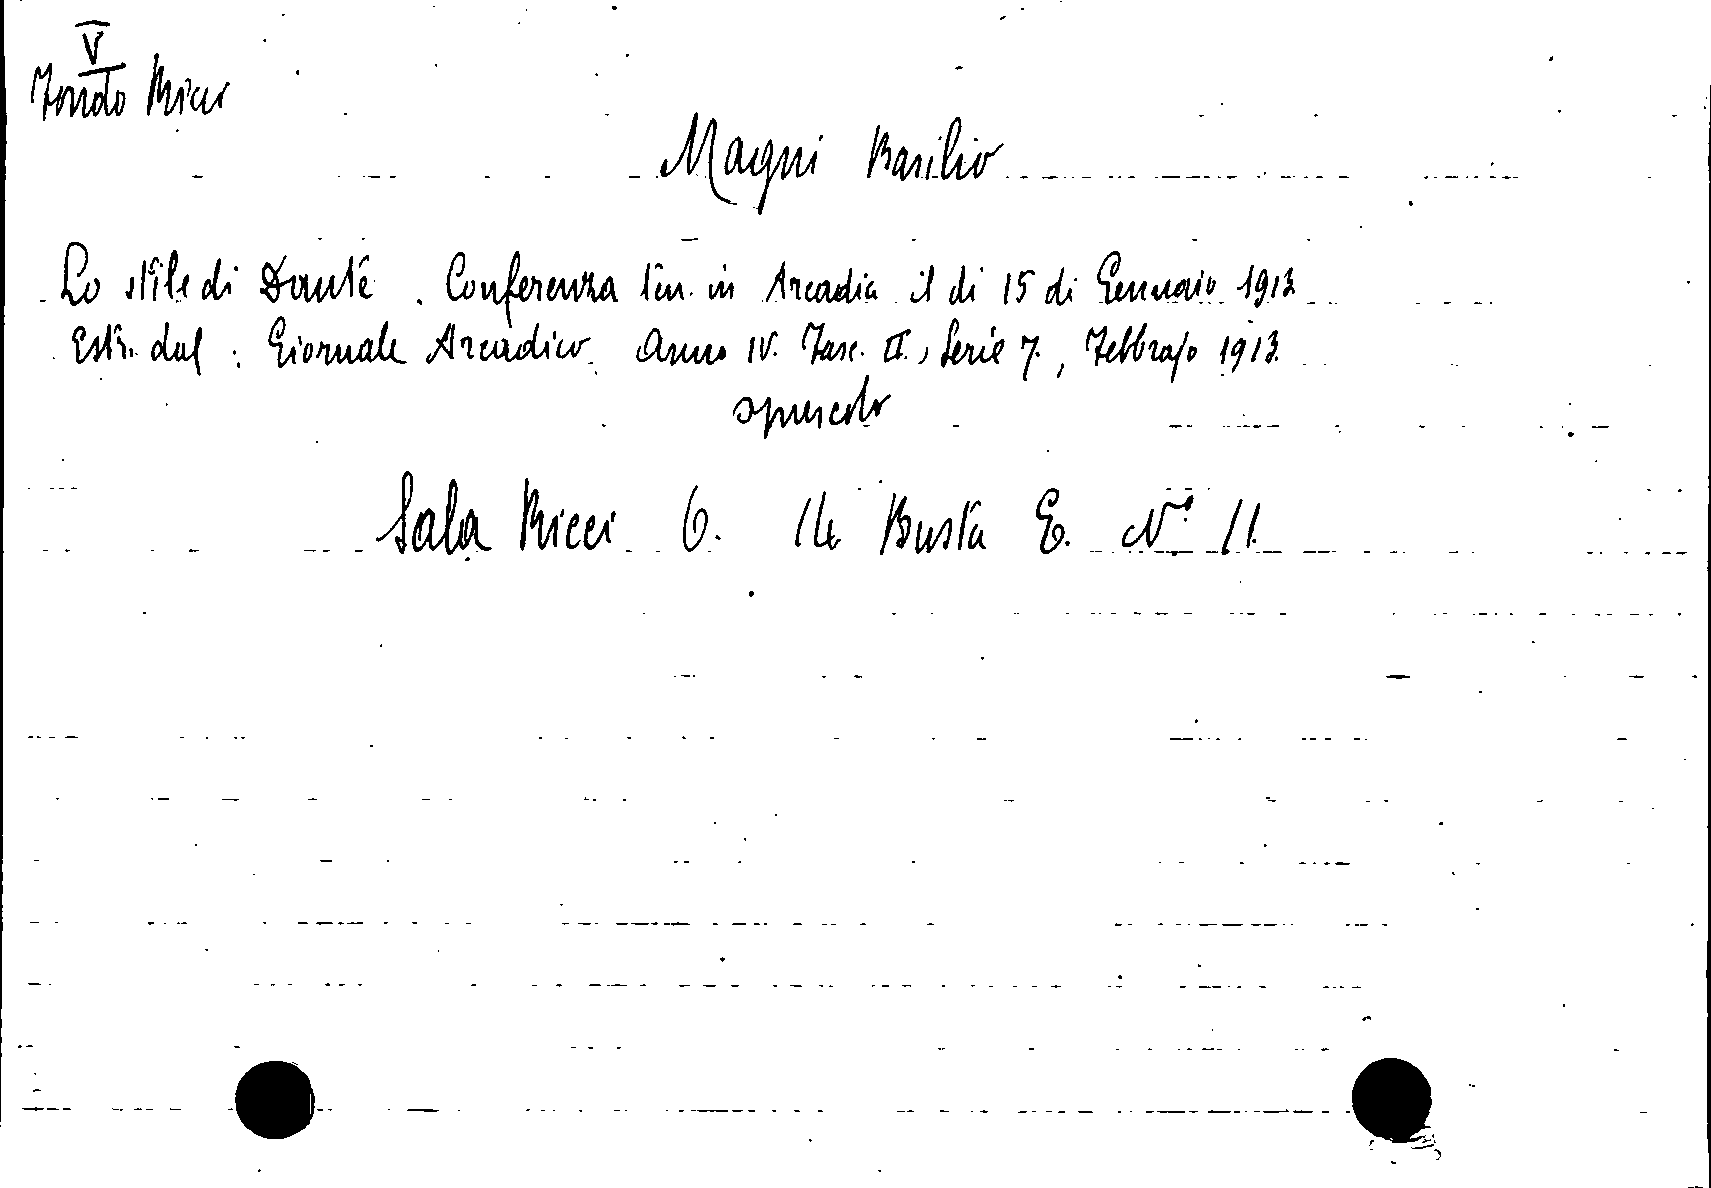 V
Fondo Ricci
Magni Basilio
Lo stile di Dante. Conferenza ten. in Arcadia il dì 15 di Gennaio 1913
Estr. dal: Giornale Arcadico. Anno IV. Fasc. II., Serie 7., Febbrajo 1913.
opuscolo
Sala Ricci 6. Busta E. N.° 11.